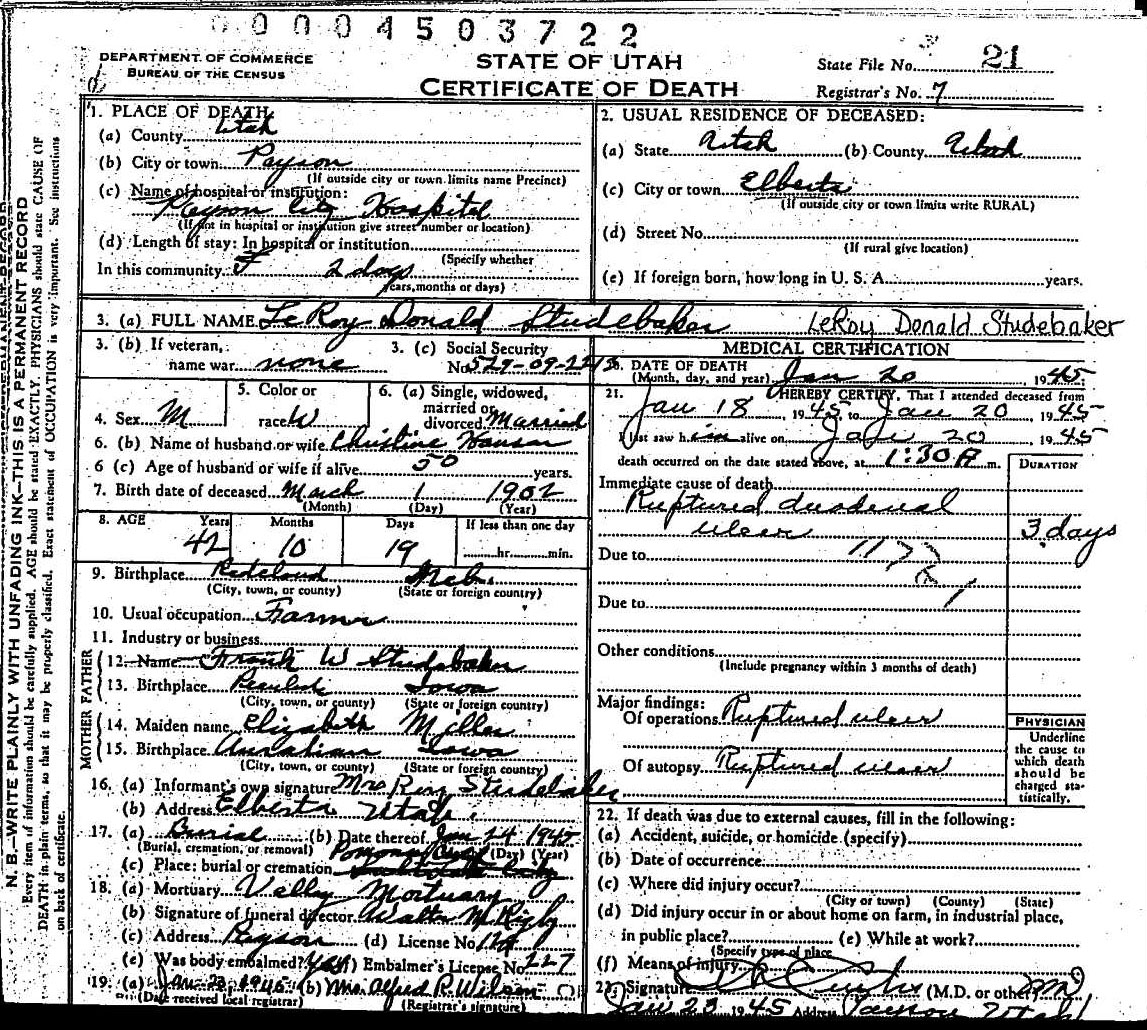 00004503722
DEPARTMENT OF COMMERCE
BUREAU OF THE CENSUS
STATE OF UTAH
CERTIFICATE OF DEATH
State File No. 21
Registrar's No. 7
N. B.—WRITE PLAINLY WITH UNFADING INK—THIS IS A PERMANENT RECORD
Every item of information should be carefully supplied. AGE should be stated EXACTLY. PHYSICIANS should state CAUSE OF
DEATH in plain terms, so that it may be properly classified. Exact statement of OCCUPATION is very important. See instructions
on back of certificate.
1. PLACE OF DEATH
(a) County Utah
(b) City or town Payson
(If outside city or town limits name Precinct)
(c) Name of hospital or institution:
Payson City Hospital
(If not in hospital or institution give street number or location)
(d) Length of stay: In hospital or institution
(Specify whether
In this community 2 days
years, months or days)
2. USUAL RESIDENCE OF DECEASED:
(a) State Utah (b) County Utah
(c) City or town Elberta
(If outside city or town limits write RURAL)
(d) Street No.
(If rural give location)
(e) If foreign born, how long in U. S. A. years.
3. (a) FULL NAME LeRoy Donald Studebaker LeRoy Donald Studebaker
3. (b) If veteran,
name war none
3. (c) Social Security
No. 529-09-2212
4. Sex M
5. Color or
race W
6. (a) Single, widowed,
married or
divorced Married
6. (b) Name of husband or wife Christine Hansen
6 (c) Age of husband or wife if alive 50 years.
7. Birth date of deceased March 1 1902
(Month) (Day) (Year)
8. AGE Years Months Days If less than one day
42 10 19 hr. min.
9. Birthplace Redcloud Neb.
(City, town, or county) (State or foreign country)
10. Usual occupation Farmer
11. Industry or business
FATHER
12. Name Frank W Studebaker
13. Birthplace Iowa
(City, town, or county) (State or foreign country)
MOTHER
14. Maiden name Elizabeth Miller
15. Birthplace Iowa
(City, town, or county) (State or foreign country)
16. (a) Informant's own signature Mrs Roy Studebaker
(b) Address Elberta Utah
17. (a) Burial (b) Date thereof Jan 24 1945
(Burial, cremation, or removal) (Day) (Year)
(c) Place: burial or cremation
18. (a) Mortuary Valley Mortuary
(b) Signature of funeral director Walter M Rigby
(c) Address Payson (d) License No.
(e) Was body embalmed? yes (f) Embalmer's License No. 227
19. (a) Jan. 23, 1945 (b) Mrs. Alfred R. Wilson
(Date received local registrar) (Registrar's signature)
MEDICAL CERTIFICATION
20. DATE OF DEATH
(Month, day, and year) Jan 20, 1945
21. I HEREBY CERTIFY, That I attended deceased from
Jan 18, 1945 to Jan 20, 1945
I last saw him alive on Jan 20 1945
death occurred on the date stated above, at 1:30 A m.
DURATION
Immediate cause of death
Ruptured duodenal
ulcer 3 days
Due to
Due to
Other conditions
(Include pregnancy within 3 months of death)
Major findings:
Of operations Ruptured ulcer
Of autopsy Ruptured ulcer
PHYSICIAN
Underline
the cause to
which death
should be
charged sta-
tistically.
22. If death was due to external causes, fill in the following:
(a) Accident, suicide, or homicide (specify)
(b) Date of occurrence
(c) Where did injury occur?
(City or town) (County) (State)
(d) Did injury occur in or about home on farm, in industrial place,
in public place? (e) While at work?
(Specify type of place
(f) Means of injury
23. Signature (M.D. or other) MD
Jan 23 1945 Address Payson Utah